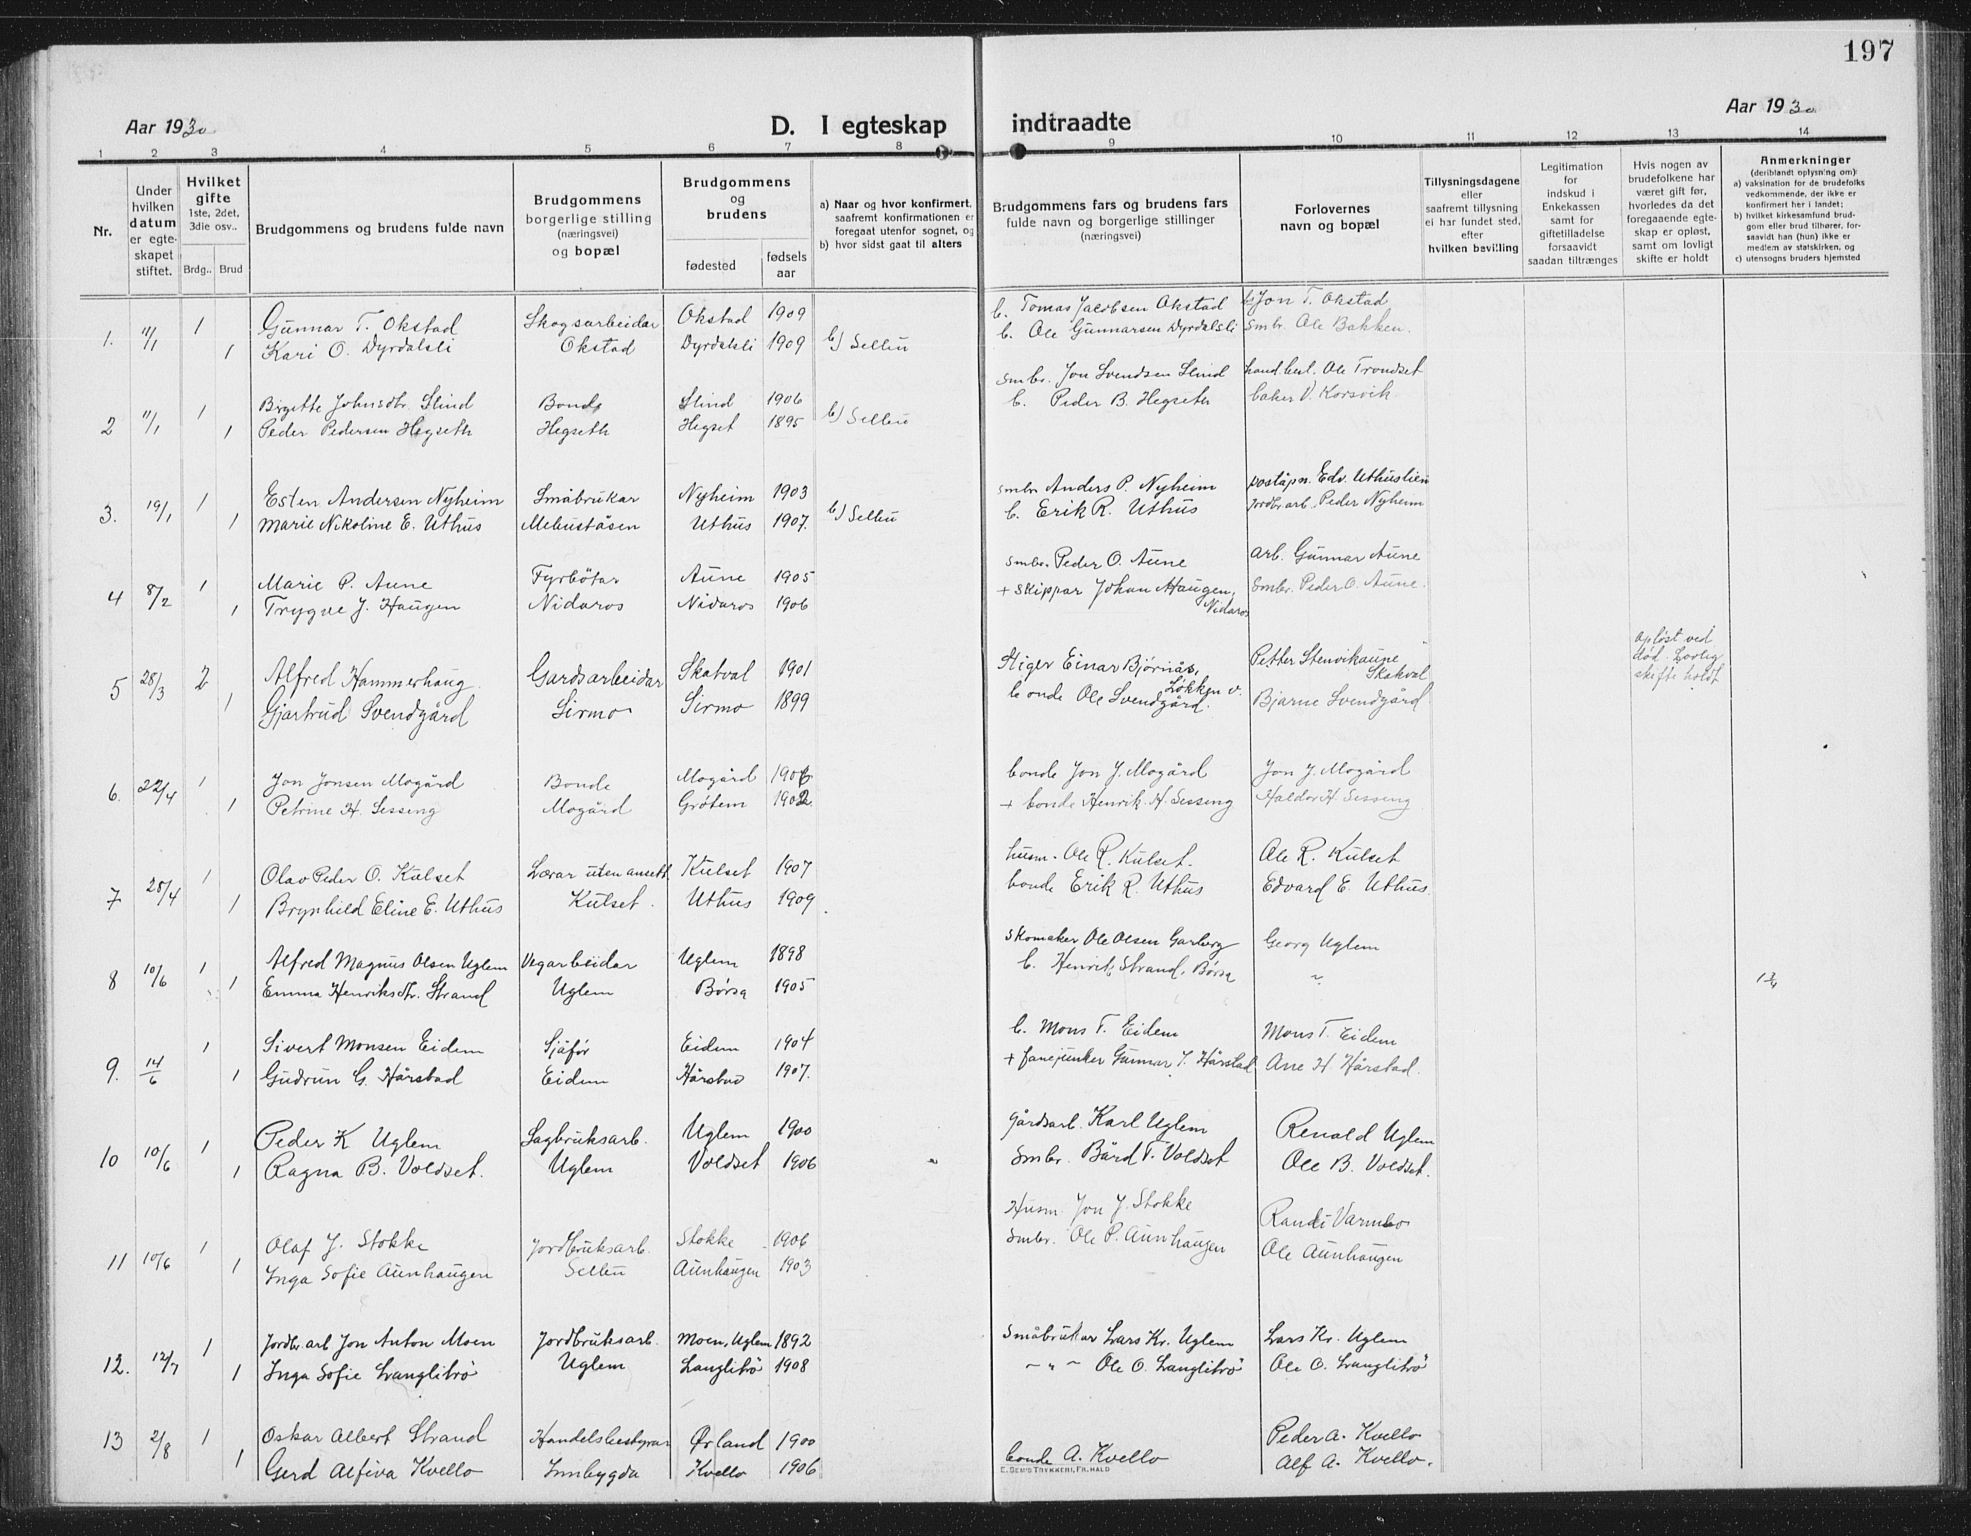 197
Aar 1930
D. I egteskap indtraadte
Aar 1930
1 2 3 4 5 6 7 8 9 10 11 12 13 14
Nr.
Under hvilken datum er egteskapet stiftet.
Hvilket gifte 1ste, 2det, 3die osv..
Brdg.. Brud
Brudgommens og brudens fulde navn
Brudgommens borgerlige stilling (næringsvei) og bopæl
Brudgommens og brudens
fødested
fødsels aar
a) Naar og hvor konfirmert, saafremt konfirmationen er foregaat utenfor sognet, og
b) hvor sidst gaat til alters
Brudgommens fars og brudens fars fulde navn og borgerlige stillinger (næringsvei)
Forlovernes navn og bopæl
Tillysningsdagene eller saafremt tillysning ei har fundet sted, efter hvilken bevilling
Legitimation for indskud i Enkekassen samt for giftetilladelse forsaavidt saadan tiltrænges
Hvis nogen av brudefolkene har været gift før, hvorledes da det foregaaende egteskap er opløst, samt om lovligt skifte er holdt
Anmerkninger
(deriblandt oplysning om)
a) vaksination for de brudefolks vedkommende, der ikke er konfirmert her i landet;
b) hvilket kirkesamfund brudgom eller brud tilhører, forsaavidt han (hun) ikke er medlem av statskirken, og
c) utensogns bruders hjemsted
1. 11/1 1 Gunnar T. Okstad Skogsarbeidar Okstad 1909 b. Tomas Jacobsen Okstad Jon T. Okstad
1 Kari O. Dyrdalsli Okstad Dyrdalsli 1909 b) Selbu b. Ole Gunnarsen Dyrdalsli smbr. Ole Bakken.
2 11/1 1 Birgitte Johnsdtr. Slind Bonde Slind 1906 b) Selbu smbr. Jon Svendsen Slind handbest. Ole Trondset
1 Peder Pedersen Hegseth Hegseth Hegset 1895 b. Peder B. Hegseth baker V. Korsvik
3. 19/1 1 Esten Andersen Nyheim Småbrukar Nyheim 1903 smbr Anders P. Nyheim poståpn. Edv. Uthuslien
1 Marie Nikoline E. Uthus Mebuståsen Uthus 1907. b) Selbu b. Erik R. Uthus Jordbr. arb. Peder Nyheim
4 8/2 1 Marie P. Aune Fyrbötar Aune 1905 smbr. Peder O. Aune arb. Gunnar Aune
1 Trygve J. Haugen Nidaros Nidaros 1906 + skippar Johan Haugen, Nidaros smbr. Peder O. Aune.
5 28/3 2 Alfred Hammerhaug Gardsarbeidar Skatval 1901 Stiger Einar Bjørnås, Løkken v. Petter Stenvikaune Skatval opløst ved død. Lovlig skifte holdt
1 Gjartrud Svendgård Sirmo Sirmo 1899 bonde Ole Svendgård. Bjarne Svendgård
6. 22/4 1 Jon Jonsen Mogård Bonde Mogård 1906 bonde Jon J. Mogård Jon J. Mogård
1 Petrine H. Sesseng Mogård Grötem 1902 + bonde Henrik H. Sesseng Haldor H Sesseng
7 28/4 1 Olav Peder O. Kulset Lærar uten ansett. Kulset 1907 husm. Ole R. Kulset. Ole R. Kulset
1 Brynhild Eline E. Uthus Kulset. Uthus 1909. bonde Erik R. Uthus Edvard E. Uthus.
8 10/6 1 Alfred Magnus Olsen Uglem Vegarbeidar Uglem 1898 Skomaker Ole Olsen Garberg Georg Uglem
1 Emma Henriksdtr. Strand Uglem Børsa 1905 b. Henrik Strand, Børsa ~
9. 14/6 1 Sivert Monsen Eidem Sjåför Eidem 1904 b. Mons T. Eidem Mons T. Eidem
1 Gudrun G. Hårstad Eidem Hårstad 1907. + fanejunker Gunnar J. Hårstad Ane H Hårstad.
10 10/6 1 Peder K Uglem Sagbruksarb. Uglem 1900 gårdsarb. Karl Uglem Renald Uglem
1 Ragna B. Voldset. Uglem Voldset 1906 Smbr. Bård T. Voldset Ole B. Voldset.
11 10/6 1 Olaf J. Stokke Jordbruksarb. Stokke 1906 Husm. Jon J. Stokke Randi Varmbo
1 Inga Sofie Aunhaugen Selbu Aunhaugen 1903 Smbr. Ole P. Aunhaugen Ole Aunhaugen
12. 12/7 1 Jordbr. arb Jon Anton Moen Jordbruksarb. Moen, Uglem 1892 Småbrukar Lars Kr. Uglem Lars Kr. Uglem
1 Inga Sofie Langlitrö Uglem Langlitrö 1908 ~ " ~ Ole O. Langlitrö Ole O. Langlitrö
13 2/8 1 Oskar Albert Strand Handelsbestyrar Ørland 1900 Peder A. Kvello
1 Gerd Alfiva Kvello Innbygda Kvello 1906 bonde A. Kvello Alf A. Kvello.
E. SEM'S TRYKKERI, FR. HALD